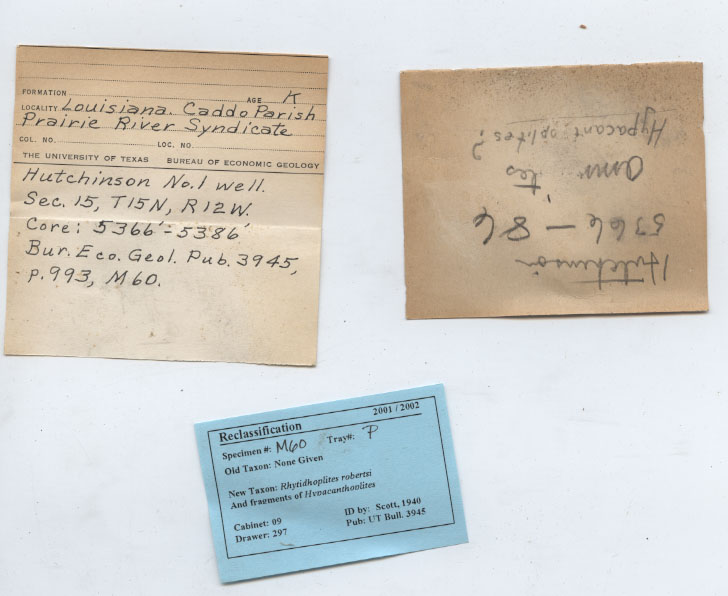 FORMATION AGE K
LOCALITY Louisiana. Caddo Parish
Prairie River Syndicate
COL. NO. LOC. NO.
THE UNIVERSITY OF TEXAS BUREAU OF ECONOMIC GEOLOGY
Hutchinson No. 1 well.
Sec. 15, T15N, R12W.
Core: 5366'-5386'
Bur. Eco. Geol. Pub. 3945,
p. 993, M60.
Hutchinson
5366 - 86
Hypacant oplites?
Reclassification 2001 / 2002
Specimen #: M60 Tray#: P
Old Taxon: None Given
New Taxon: Rhytidhoplites robertsi
And fragments of Hypacanthoplites
Cabinet: 09 ID by: Scott, 1940
Drawer: 297 Pub: UT Bull. 3945